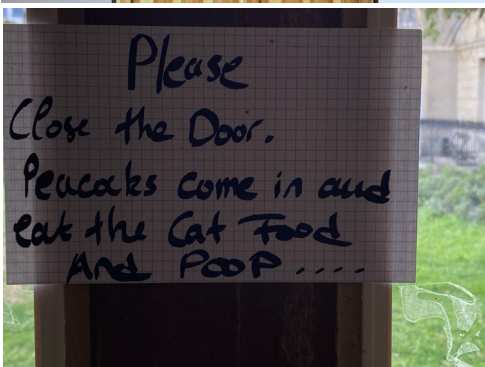 Please
Close the Door.
Peacocks come in and
eat the Cat Food
And PooP....